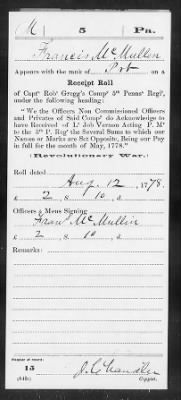 M | 5 | Pa.
Francis McMullen
Appears with the rank of Pvt on a
Receipt Roll
of Capt' Rob' Gregg's Comp' 5th Penns' Reg',
under the following heading:
"We the Officers Non Commissioned Officers
and Privates of Said Comp' do Acknowledge to
have Received of L' Job Vernon Acting P. M'
to the 5th P. Reg' the Several Sums to which our
Names or Marks are Set Opposite, Being our Pay
in full for the month of May, 1778."
(Revolutionary War.)
Roll dated
Aug. 12, 1778.
£ 2 s. 10 d.
Officers & Mens Signing
Fran' McMullin
£ 2 s. 10 d.
Remarks:
Number of record:
15
J. C. Chandler
(545b) Copyist.